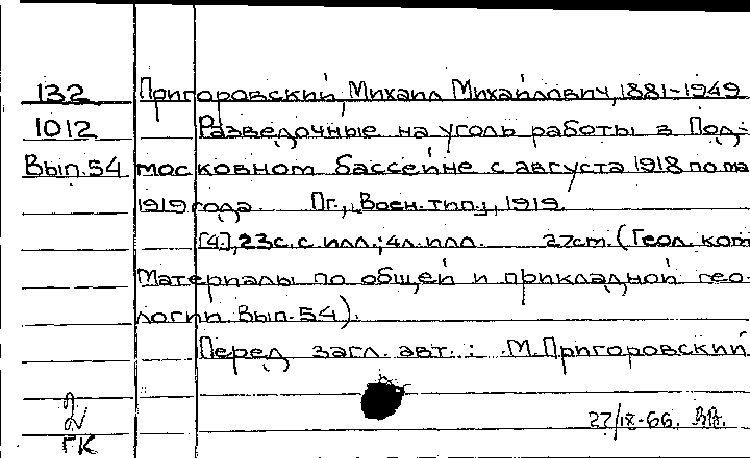 132 Пригоровский, Михаил Михайлович, 1881-1949
1012 Разведочные на уголь работы в Под-
Вып.54 московном бассейне с августа 1918 по ма
1919 года. Пг., "Воен. тип.", 1919.
[4], 23 с. с илл.; 4 л. илл. 27 cm. (Геол. ком
Материалы по общей и прикладной гео-
логии Вып. 54).
Перед загл. авт.: М. Пригоровский
2
ГК
27/IX-66.